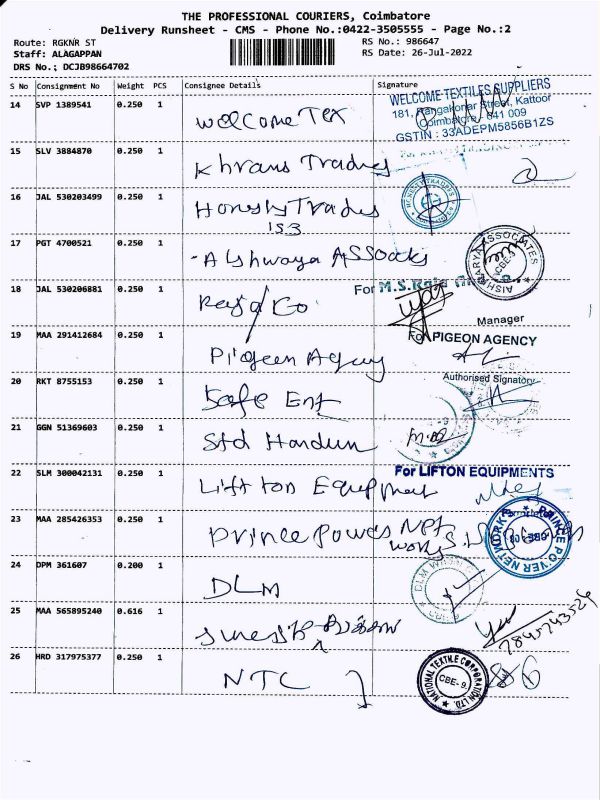 THE PROFESSIONAL COURIERS, Coimbatore
Delivery Runsheet - CMS - Phone No.:0422-3505555 - Page No.:2
Route: RGKNR ST
RS No.: 986647
Staff: ALAGAPPAN
RS Date: 26-Jul-2022
DRS No.; DCJB98664702
S No Consignment No Weight PCS Consignee Details Signature
14 SVP 1389541 0.250 1 Welcome Tex
WELCOME TEXTILES SUPPLIERS
181, Rangakonar Street, Kattoor
Coimbatore - 641 009
GSTIN : 33ADEPM5856B1ZS
15 SLV 3884870 0.250 1 Khrans Trades
16 JAL 530203499 0.250 1 Honesty Trades
153
17 PGT 4700521 0.250 1 Aishwaya ASSOCiates
AISHWARYA ASSOCIATES
CBE-9
18 JAL 530206881 0.250 1 Raja Co
For M.S. Raja
Manager
19 MAA 291412684 0.250 1 Pigeen Agency
For PIGEON AGENCY
Authorised Signatory
20 RKT 8755153 0.250 1 Safe Ent
21 GGN 51369603 0.250 1 Std Hardwre
22 SLM 300042131 0.250 1 Lift ton Equipment
For LIFTON EQUIPMENTS
23 MAA 285426353 0.250 1 Prince Power Net
work
PRINCE POWER NETWORK
24 DPM 361607 0.200 1 DLM
25 MAA 565895240 0.616 1 Suresh
26 HRD 317975377 0.250 1 NTC
NATIONAL TEXTILE CORPORATION LTD.
CBE-9.